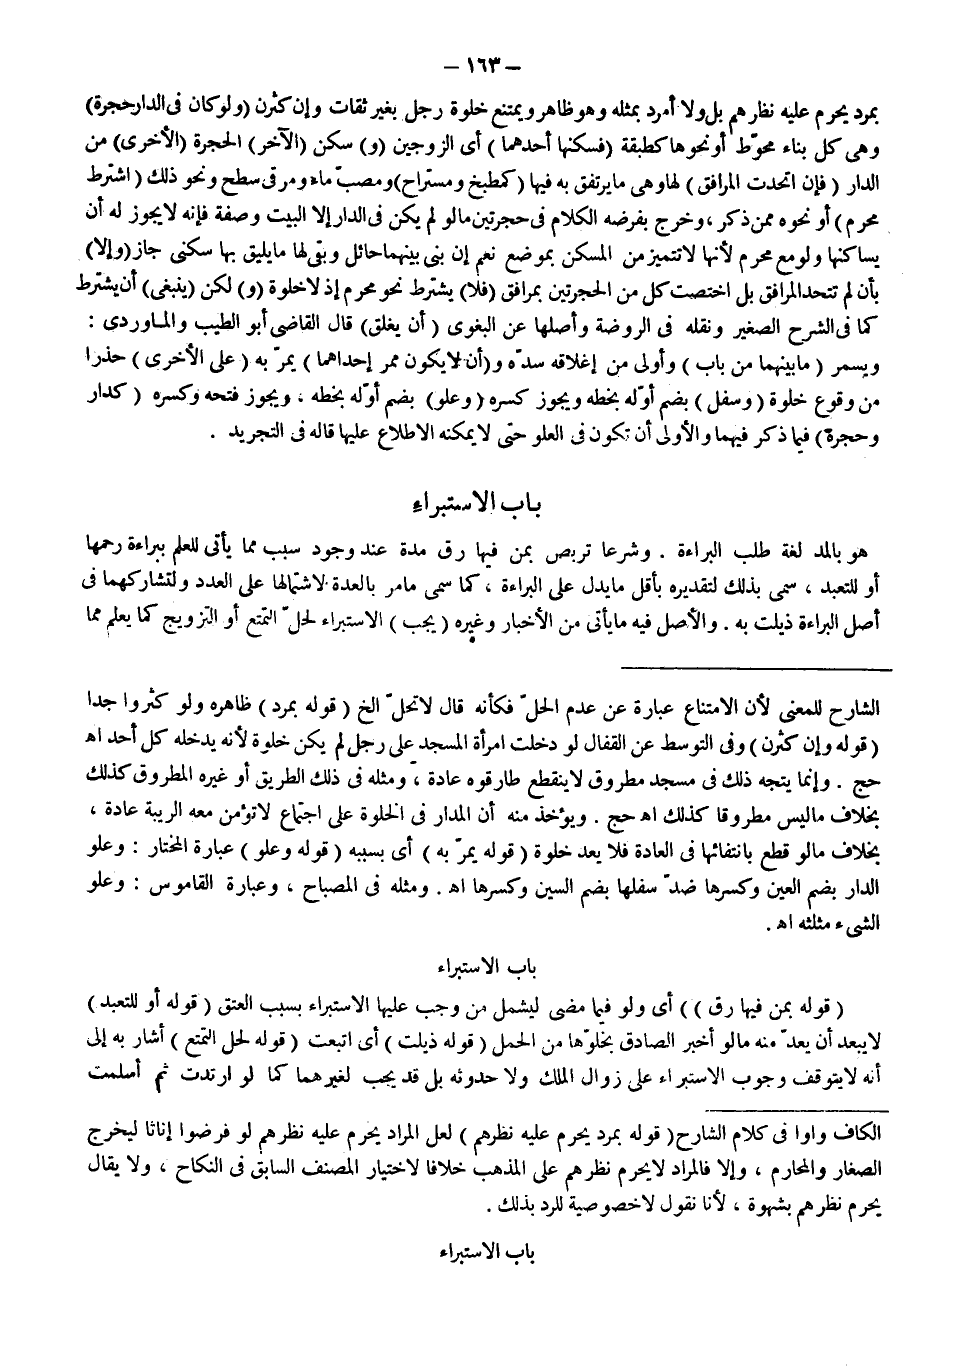 — ١٦٣ —
بمرد يحرم عليه نظرهم بل ولا أمرد بمثله وهو ظاهر ويمتنع خلوة رجل بغير ثقات وإن كثرن (ولو كان فى الدار حجرة)
وهى كل بناء محوّط أو نحوها كطبقة (فسكنها أحدهما) أى الزوجين (و) سكن (الآخر) الحجرة (الأخرى) من
الدار (فإن اتحدت المرافق) لها وهى ما يرتفق به فيها (كمطبخ ومستراح) ومصبّ ماء ومرقى سطح ونحو ذلك (اشترط
محرم) أو نحوه ممن ذكر، وخرج بفرضه الكلام فى حجرتين مالو لم يكن فى الدار إلا البيت وصفة فإنه لا يجوز له أن
يساكنها ولو مع محرم لأنها لا تتميز من المسكن بموضع نعم إن بنى بينهما حائل وبقى لها ما يليق بها سكنى جاز (وإلا)
بأن لم تتحد المرافق بل اختصت كل من الحجرتين بمرافق (فلا) يشترط نحو محرم إذ لا خلوة (و) لكن (ينبغى) أن يشترط
كما فى الشرح الصغير ونقله فى الروضة وأصلها عن البغوى (أن يغلق) قال القاضى أبو الطيب والماوردى :
ويسمر (ما بينهما من باب) وأولى من إغلاقه سدّه و(أن لا يكون ممر إحداهما) يمرّ به (على الأخرى) حذرا
من وقوع خلوة (وسفل) بضم أوّله بخطه ويجوز كسره (وعلو) بضم أوّله بخطه ، ويجوز فتحه وكسره (كدار
وحجرة) فيما ذكر فيهما والأولى أن تكون فى العلو حتى لا يمكنه الاطلاع عليها قاله فى التجريد .
باب الاستبراء
هو بالمد لغة طلب البراءة . وشرعا تربص بمن فيها رق مدة عند وجود سبب مما يأتى للعلم ببراءة رحمها
أو للتعبد ، سمى بذلك لتقديره بأقل ما يدل على البراءة ، كما سمى مامر بالعدة لاشتمالها على العدد ولتشاركهما فى
أصل البراءة ذيلت به . والأصل فيه ما يأتى من الأخبار وغيره (يجب) الاستبراء لحلّ التمتع أو التزويج كما يعلم مما
الشارح للمعنى لأن الامتناع عبارة عن عدم الحلّ فكأنه قال لا تحلّ الخ (قوله بمرد) ظاهره ولو كثروا جدا
(قوله وإن كثرن) وفى التوسط عن القفال لو دخلت امرأة المسجد على رجل لم يكن خلوة لأنه يدخله كل أحد اه
حج . وإنما يتجه ذلك فى مسجد مطروق لا ينقطع طارقوه عادة ، ومثله فى ذلك الطريق أو غيره المطروق كذلك
بخلاف ماليس مطروقا كذلك اه حج . ويؤخذ منه أن المدار فى الخلوة على اجتماع لا تؤمن معه الريبة عادة ،
بخلاف مالو قطع بانتفائها فى العادة فلا يعد خلوة (قوله يمرّ به) أى بسببه (قوله وعلو) عبارة المختار : وعلو
الدار بضم العين وكسرها ضدّ سفلها بضم السين وكسرها اه . ومثله فى المصباح ، وعبارة القاموس : وعلو
الشىء مثلثه اه .
باب الاستبراء
(قوله بمن فيها رق )) أى ولو فيما مضى ليشمل من وجب عليها الاستبراء بسبب العتق (قوله أو للتعبد)
لا يبعد أن يعدّ منه مالو أخبر الصادق بخلوّها من الحمل (قوله ذيلت) أى اتبعت (قوله لحل التمتع) أشار به إلى
أنه لا يتوقف وجوب الاستبراء على زوال الملك ولا حدوثه بل قد يجب لغيرهما كما لو ارتدت ثم أسلمت
الكاف واوا فى كلام الشارح (قوله بمرد يحرم عليه نظرهم) لعل المراد يحرم عليه نظرهم لو فرضوا إناثا ليخرج
الصغار والمحارم ، وإلا فالمراد لا يحرم نظرهم على المذهب خلافا لاختيار المصنف السابق فى النكاح ، ولا يقال
يحرم نظرهم بشهوة ، لأنا نقول لا خصوصية للرد بذلك .
باب الاستبراء